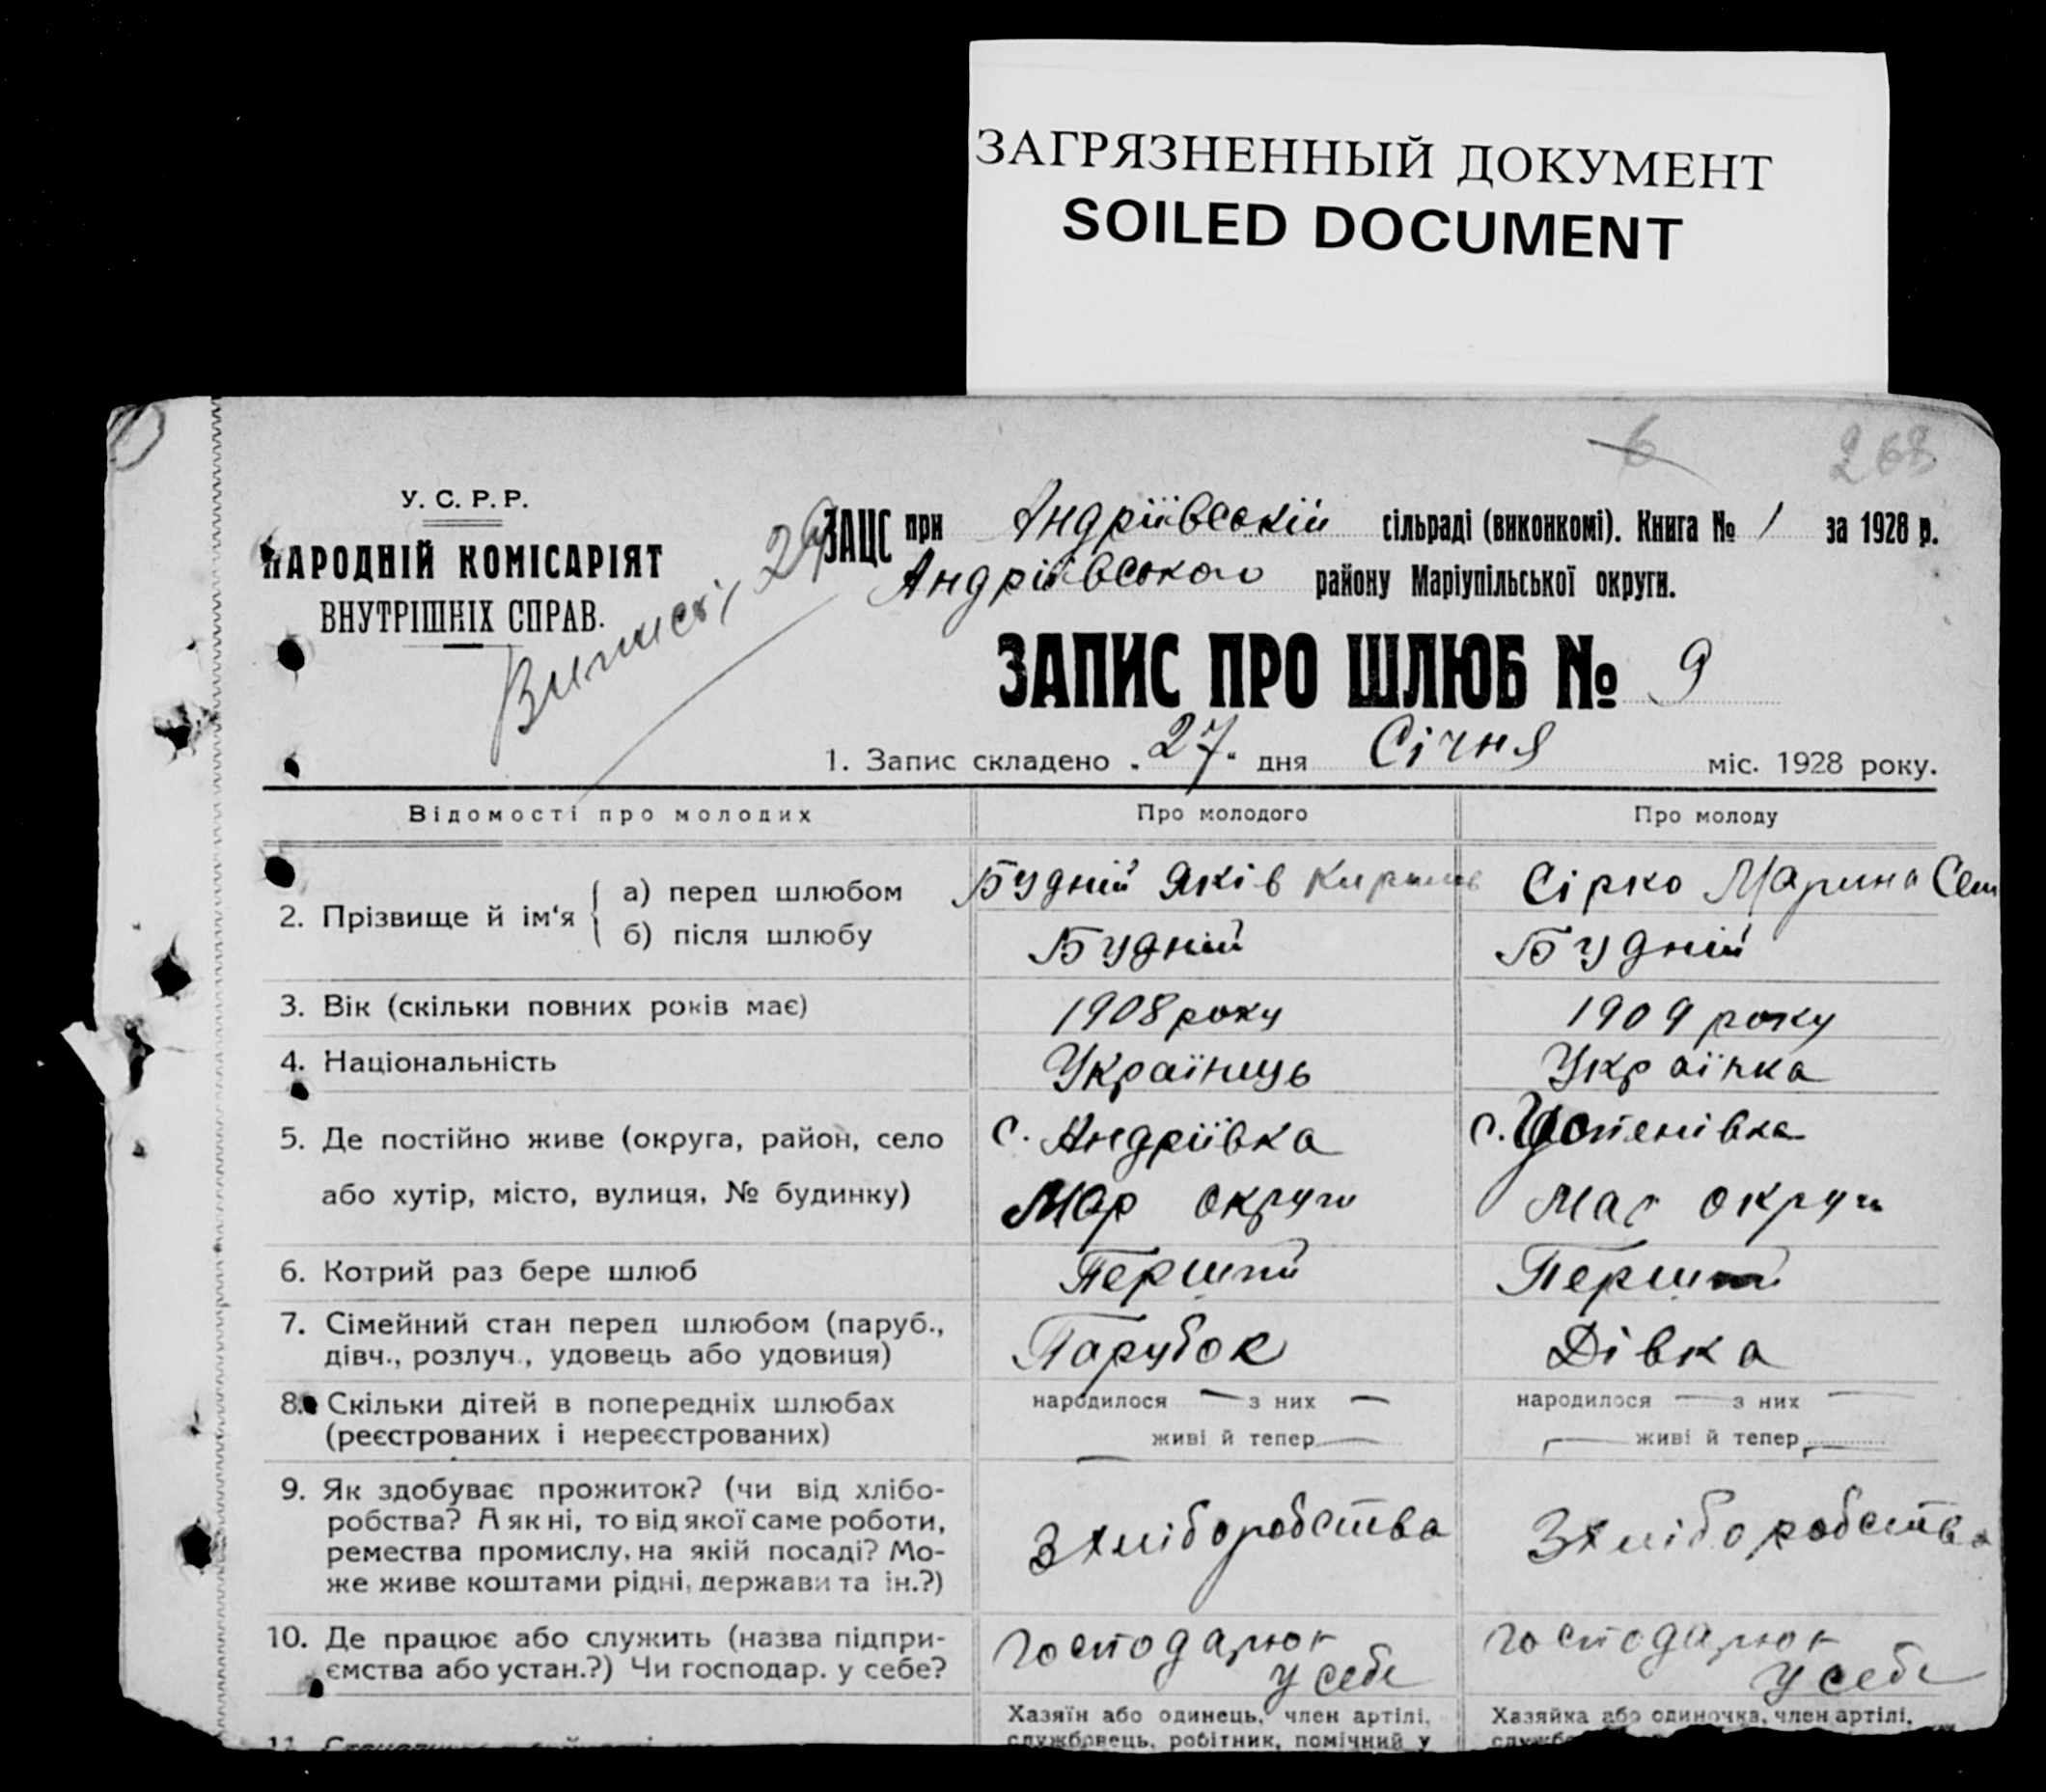 ЗАГРЯЗНЕННЫЙ ДОКУМЕНТ
SOILED DOCUMENT
6 268
У. С. Р. Р.
НАРОДНІЙ КОМІСАРІЯТ
ВНУТРІШНІХ СПРАВ.
ЗАЦС при Андріївській сільраді (виконкомі). Книга № 1 за 1928 р.
Андріївського району Маріупільської округи.
ЗАПИС ПРО ШЛЮБ № 9
1. Запис складено „27" дня Січня міс. 1928 року.
Відомості про молодих Про молодого Про молоду
2. Прізвище й ім'я а) перед шлюбом Будній Яків Сірко Марина Сем
б) після шлюбу Будній Будній
3. Вік (скільки повних років має) 1908 року 1909 року
4. Національність Українець Українка
5. Де постійно живе (округа, район, село с. Андріївка с.
або хутір, місто, вулиця, № будинку) Мар округи Мар округи
6. Котрий раз бере шлюб Перший Перший
7. Сімейний стан перед шлюбом (паруб., Парубок Дівка
дівч., розлуч., удовець або удовиця)
8. Скільки дітей в попередніх шлюбах народилося — з них — народилося — з них —
(реєстрованих і нереєстрованих) живі й тепер — — живі й тепер
9. Як здобуває прожиток? (чи від хлібо-
робства? А як ні, то від якої саме роботи, З хліборобства З хліборобства
ремества промислу, на якій посаді? Мо-
же живе коштами рідні, держави та ін.?)
10. Де працює або служить (назва підпри- Господарює Господарює
ємства або устан.?) Чи господар. у себе? у себе у себе
Хазяїн або одинець, член артілі, Хазяйка або одиночка, член артілі,
11. службовець, робітник, помічний у